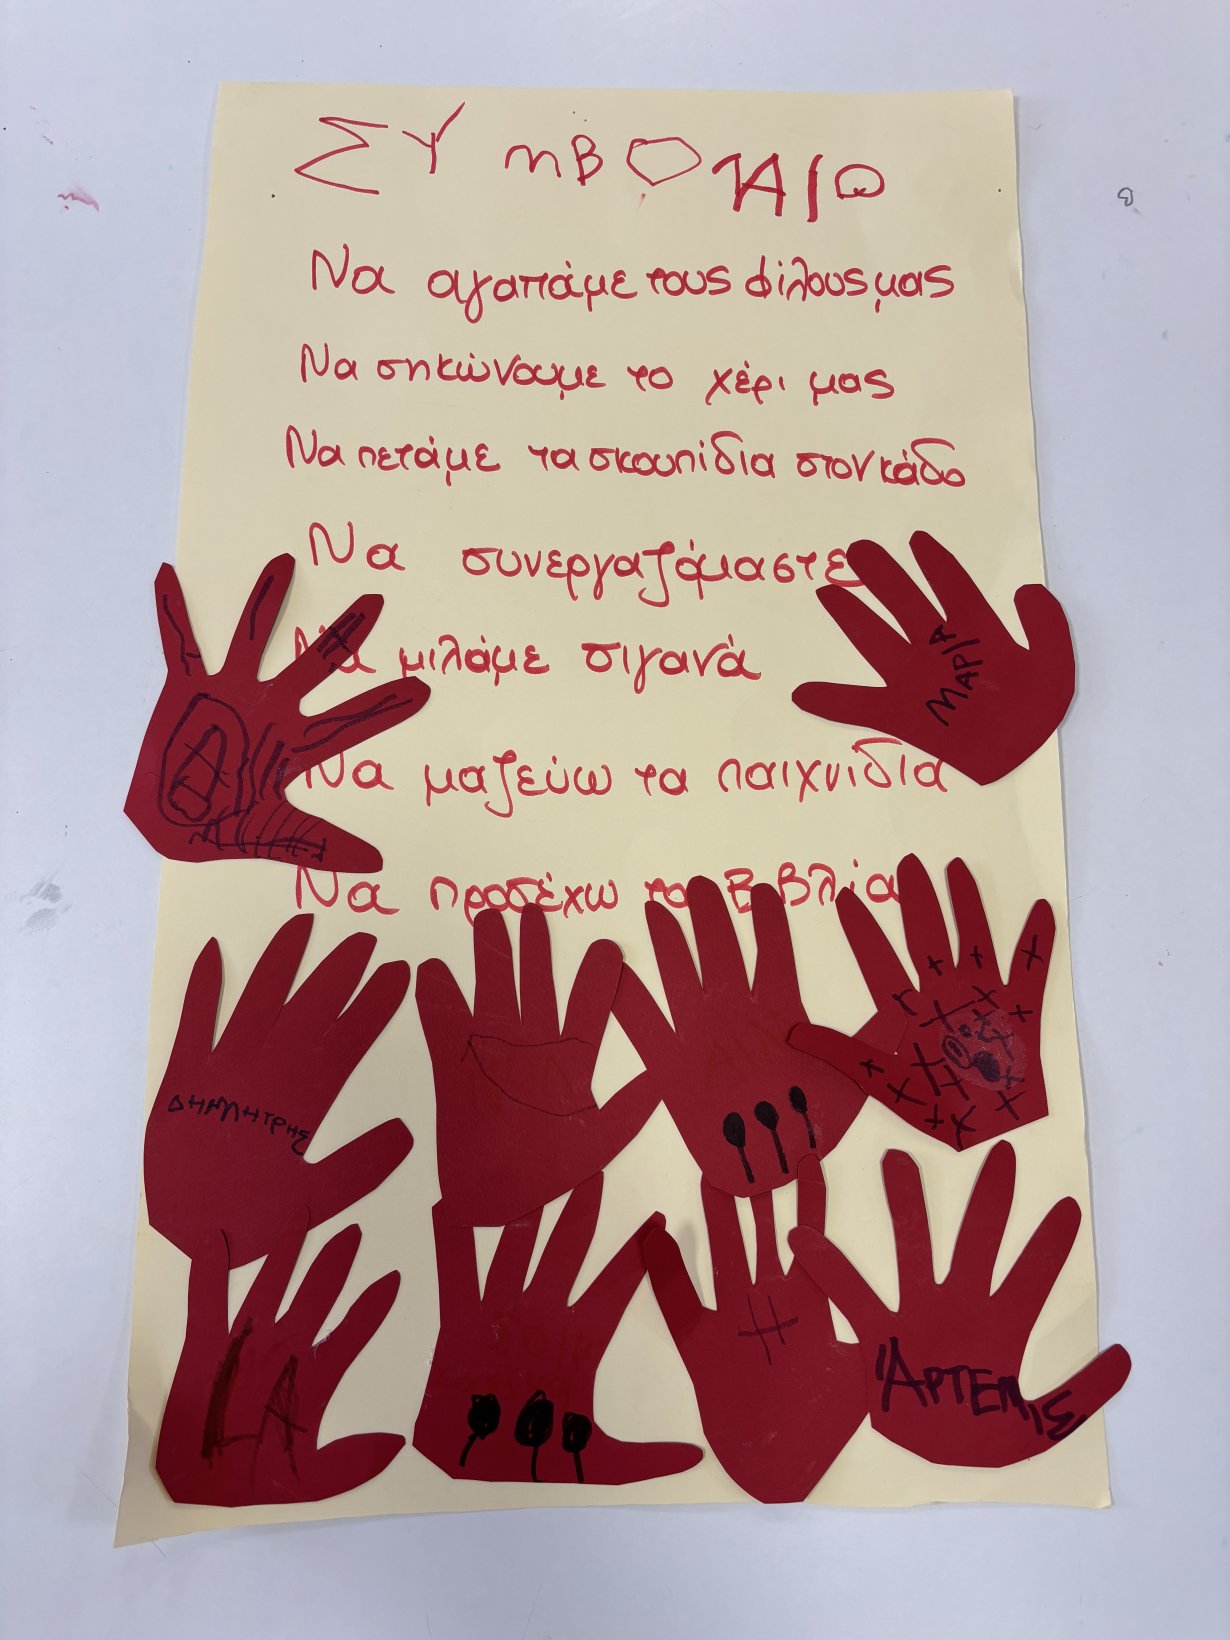 ΣΥΜΒΟΛΑΙΟ
Να αγαπάμε τους φίλους μας
Να σηκώνουμε το χέρι μας
Να πετάμε τα σκουπίδια στον κάδο
Να συνεργαζόμαστε
Να μιλάμε σιγανά
Να μαζεύω τα παιχνίδια
Να προσέχω τα Βιβλία
ΜΑΡΙΑ
ΔΗΜΗΤΡΗΣ
ΆΡΤΕΜΙΣ